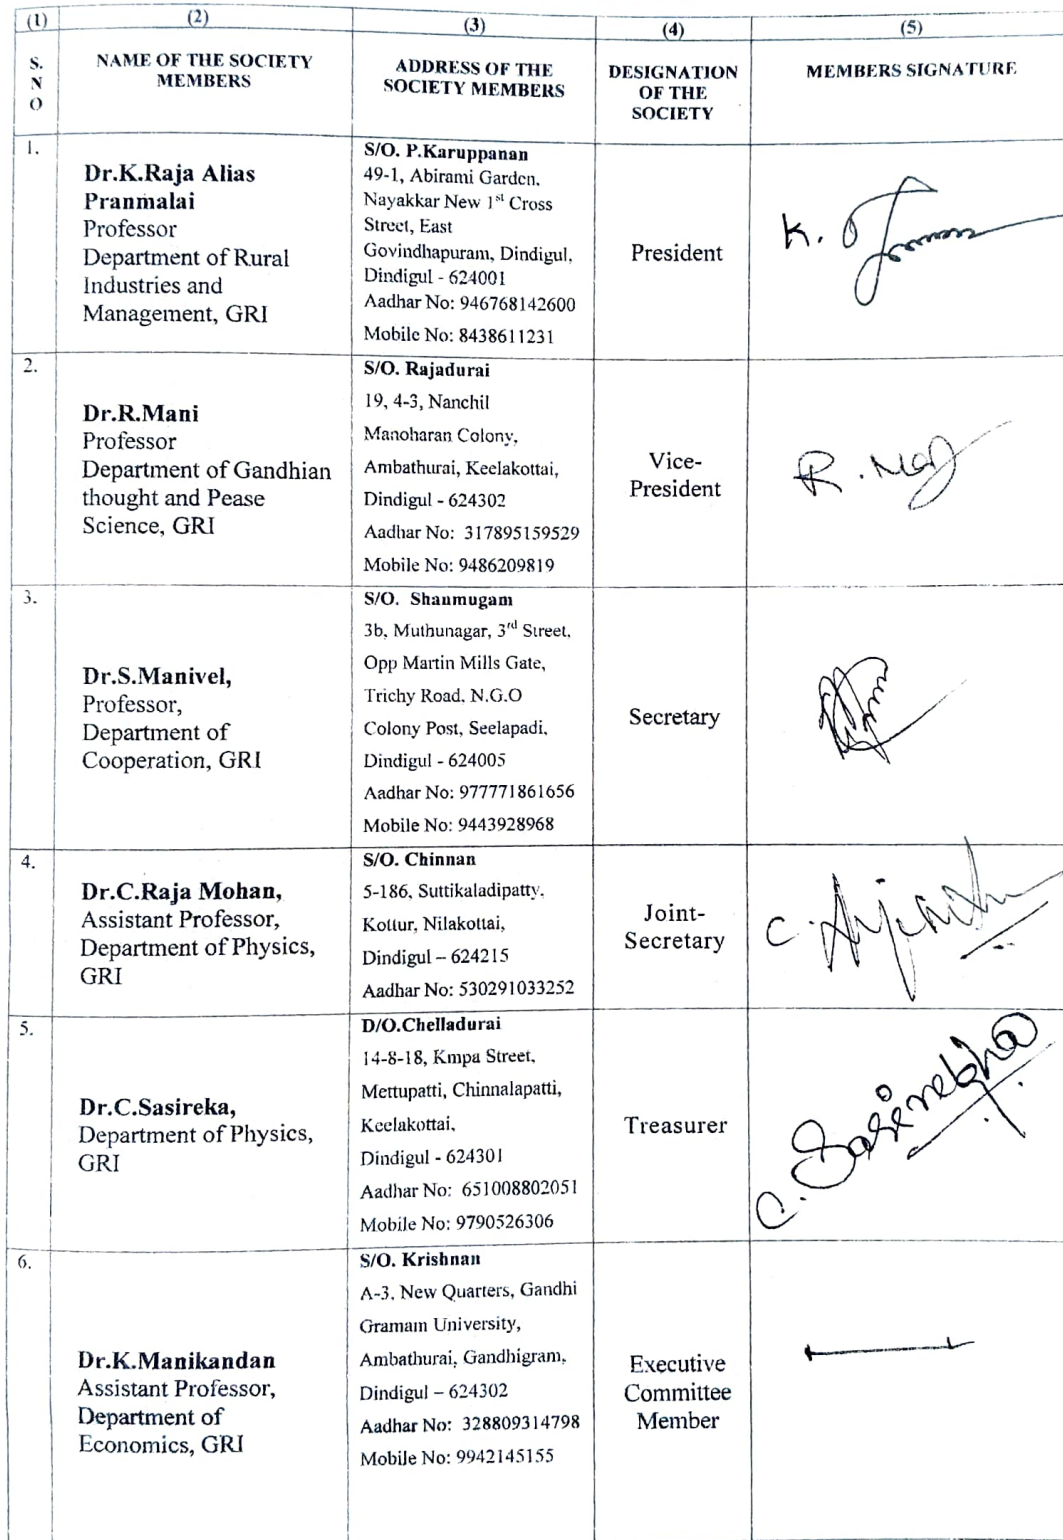 (1) (2) (3) (4) (5)
S.
N
O
NAME OF THE SOCIETY
MEMBERS
ADDRESS OF THE
SOCIETY MEMBERS
DESIGNATION
OF THE
SOCIETY
MEMBERS SIGNATURE
1.
Dr.K.Raja Alias
Pranmalai
Professor
Department of Rural
Industries and
Management, GRI
S/O. P.Karuppanan
49-1, Abirami Garden,
Nayakkar New 1st Cross
Street, East
Govindhapuram, Dindigul,
Dindigul - 624001
Aadhar No: 946768142600
Mobile No: 8438611231
President
K.
2.
Dr.R.Mani
Professor
Department of Gandhian
thought and Pease
Science, GRI
S/O. Rajadurai
19, 4-3, Nanchil
Manoharan Colony,
Ambathurai, Keelakottai,
Dindigul - 624302
Aadhar No: 317895159529
Mobile No: 9486209819
Vice-
President
R.
3.
Dr.S.Manivel,
Professor,
Department of
Cooperation, GRI
S/O. Shanmugam
3b, Muthunagar, 3rd Street,
Opp Martin Mills Gate,
Trichy Road, N.G.O
Colony Post, Seelapadi,
Dindigul - 624005
Aadhar No: 977771861656
Mobile No: 9443928968
Secretary
4.
Dr.C.Raja Mohan,
Assistant Professor,
Department of Physics,
GRI
S/O. Chinnan
5-186, Suttikaladipatty,
Kottur, Nilakottai,
Dindigul – 624215
Aadhar No: 530291033252
Joint-
Secretary
C.
5.
Dr.C.Sasireka,
Department of Physics,
GRI
D/O.Chelladurai
14-8-18, Kmpa Street,
Mettupatti, Chinnalapatti,
Keelakottai,
Dindigul - 624301
Aadhar No: 651008802051
Mobile No: 9790526306
Treasurer
C. Sasirekha
6.
Dr.K.Manikandan
Assistant Professor,
Department of
Economics, GRI
S/O. Krishnan
A-3, New Quarters, Gandhi
Gramam University,
Ambathurai, Gandhigram,
Dindigul – 624302
Aadhar No: 328809314798
Mobile No: 9942145155
Executive
Committee
Member